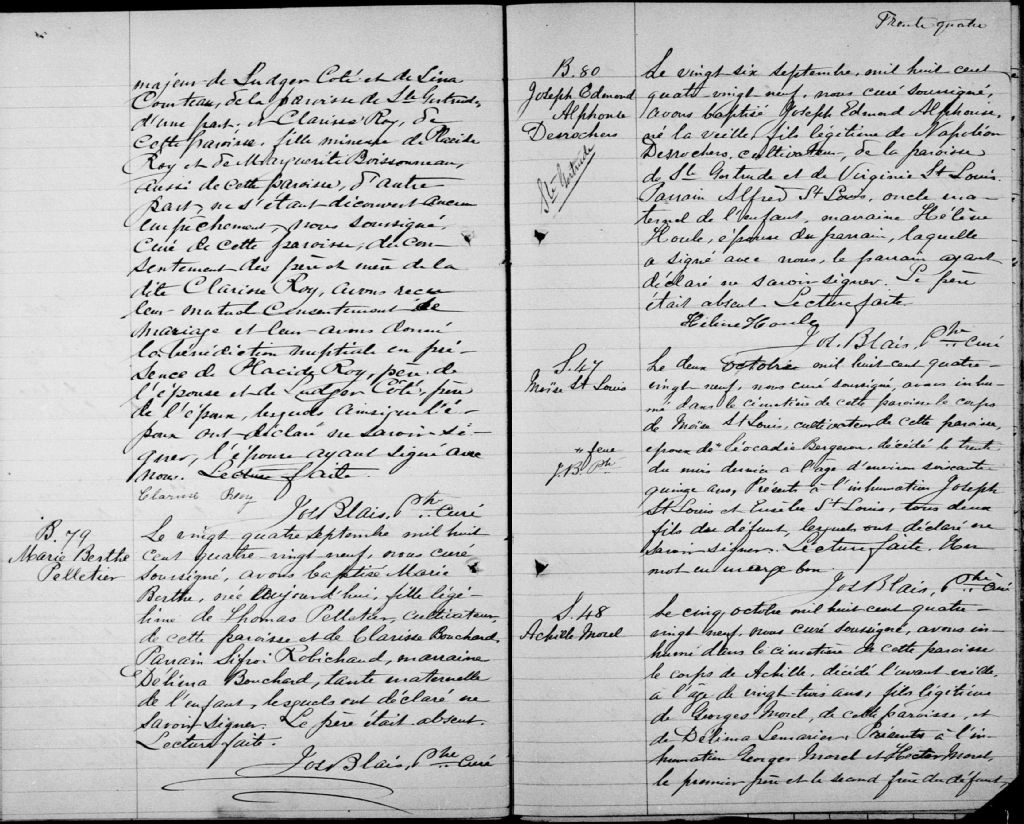 majeur de Ludger Coté et de Lina
Comteau, de la paroisse de Ste Gertrude,
d'une part; et Clarisse Roy, de
cette paroisse, fille mineure de Placide
Roy et de Marguerite Boissonneau,
aussi de cette paroisse, d'autre
part, ne s'étant découvert aucun
empêchement, nous soussigné,
Curé de cette paroisse, du con-
sentement des père et mère de la
dite Clarisse Roy, avons reçu
leur mutuel consentement de
mariage et leur avons donné
la bénédiction nuptiale en pré-
sence de Placide Roy, père de
l'épouse et de Ludger Côté, père
de l'époux, lesquels ainsi que l'é-
poux ont déclaré ne savoir si-
gner, l'épouse ayant signé avec
nous. Lecture faite.
Clarisse Roy
Jos Blais, Ptre Curé
B. 79
Marie Berthe
Pelletier
Le vingt quatre septembre mil huit
cent quatre-vingt neuf, nous curé
soussigné, avons baptisé Marie
Berthe, née aujourd'hui, fille légi-
time de Thomas Pelletier, cultivateur,
de cette paroisse et de Clarisse Bouchard,
Parrain Sifroi Robichaud, marraine
Délima Bouchard, tante maternelle
de l'enfant, lesquels ont déclaré ne
savoir signer. Le père était absent.
Lecture faite.
Jos Blais, Ptre Curé
Trente quatre
B. 80
Joseph Edmond
Alphonse
Desrochers
Ste Gertrude
Le vingt six septembre, mil huit cent
quatre vingt neuf, nous curé soussigné,
avons baptisé Joseph Edmond Alphonse,
né la veille, fils légitime de Napoléon
Desrochers, cultivateur, de la paroisse
de Ste Gertrude et de Virginie St Louis.
Parrain Alfred St Louis, oncle ma-
ternel de l'enfant, marraine Hélène
Houle, épouse du parrain, laquelle
a signé avec nous, le parrain ayant
déclaré ne savoir signer. Le père
était absent. Lecture faite
Hélène Houle
Jos. Blais, Ptre Curé
S. 47
Moïse St Louis
Le deux octobre mil huit cent quatre-
vingt neuf, nous curé soussigné, avons inhu-
mé dans le cimetière de cette paroisse le corps
de Moïse St Louis, cultivateur de cette paroisse,
" feue
J.B. Ptre
époux de " Léocadie Bergeron, décédé le trente
du mois dernier à l'age d'environ soixante
quinze ans, Présents à l'inhumation Joseph
St Louis et Eusèbe St Louis, tous deux
fils du défunt, lesquels ont déclaré ne
savoir signer. Lecture faite. Un
mot en marge bon.
Jos Blais, Ptre Curé
S. 48
Achille Morel
Le cinq octobre mil huit cent quatre-
vingt neuf, nous curé soussigné, avons in-
humé dans le cimetière de cette paroisse
le corps de Achille, décédé l'avant veille,
à l'âge de vingt-trois ans, fils légitime
de Georges Morel, de cette paroisse, et
de Délima Lemarier. Présents à l'in-
humation Georges Morel et Hector Morel,
le premier père et le second frère du défunt,